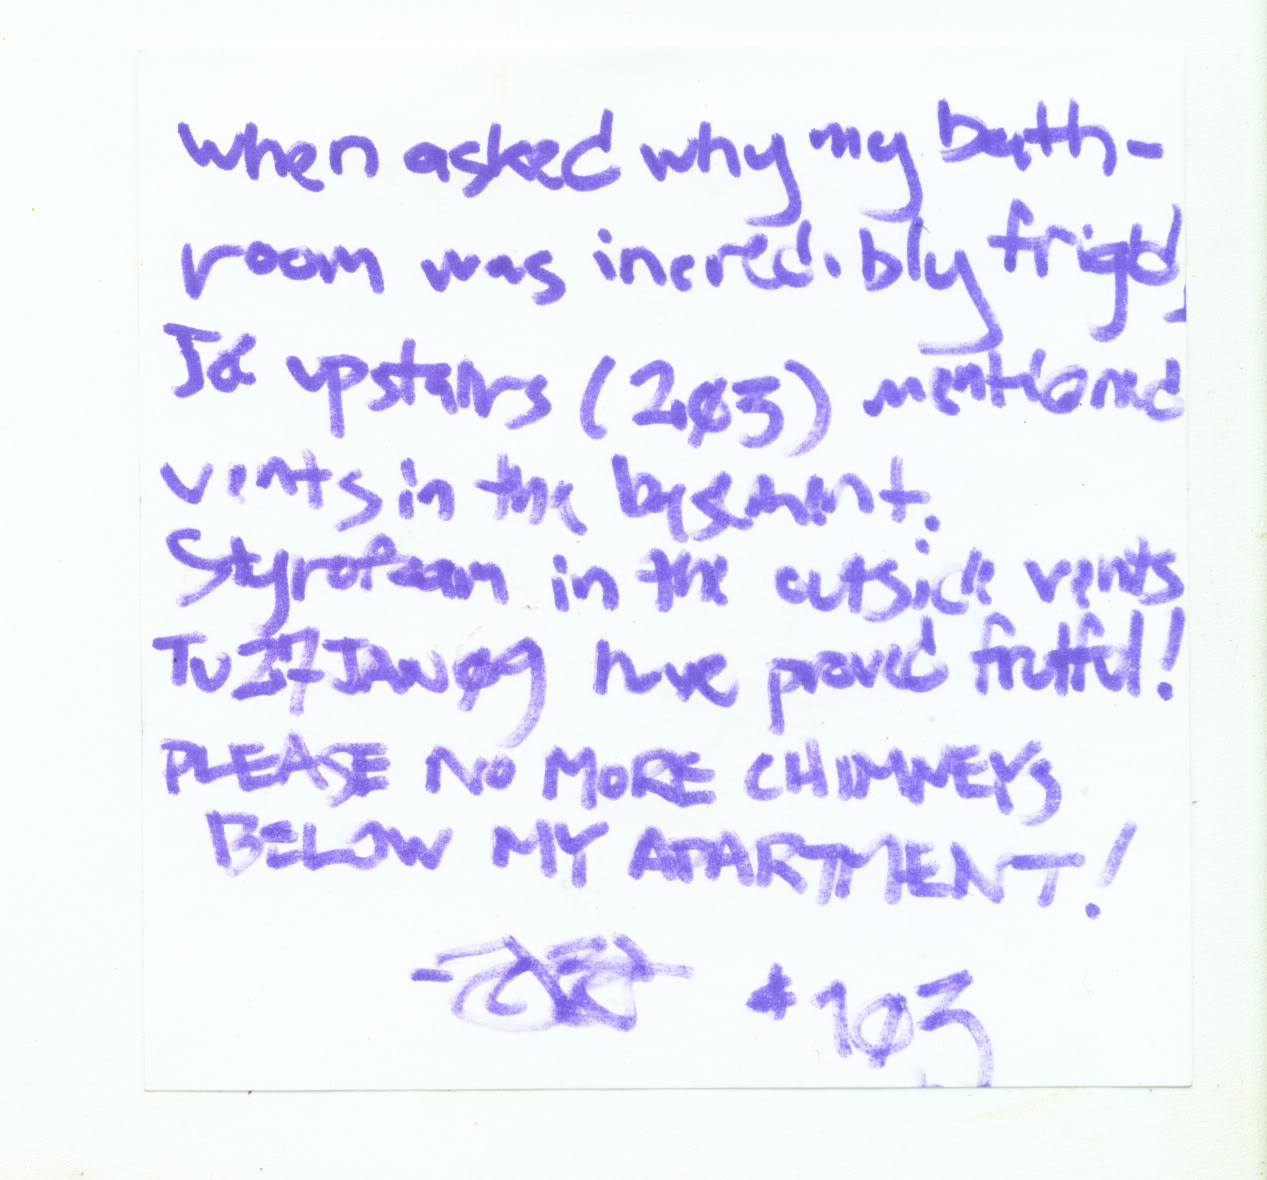 when asked why my bath-
room was incredibly frigid,
upstairs (2Ø3) mentioned
vents in the basement.
Styrofoam in the outside vents
Tu 27 JAN Ø9 have proved fruitful!
PLEASE NO MORE CHIMNEYS
BELOW MY APARTMENT!
#1Ø3